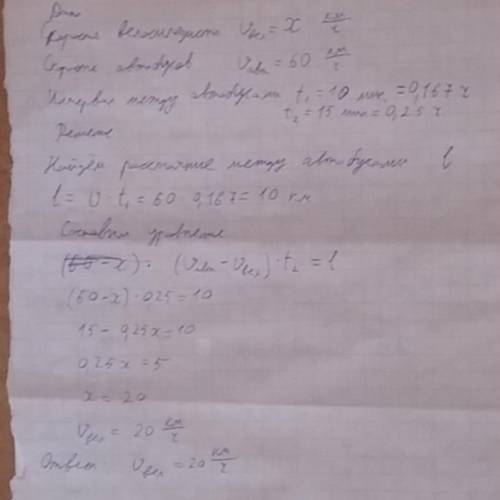 Дано
Скорость велосипедиста Vвел = x км/ч
Скорость автобусов Vавт = 60 км/ч
Интервал между автобусами t₁ = 10 мин. = 0,167 ч
t₂ = 15 мин = 0,25 ч
Решение
Найдём расстояние между автобусами l
l = V · t₁ = 60 · 0,167 = 10 км
Составим уравнение
(60 - x) · (Vавт - Vвел) · t₂ = l
(60 - x) · 0,25 = 10
15 - 0,25x = 10
0,25x = 5
x = 20
Vвел = 20 км/ч
Ответ: Vвел = 20 км/ч